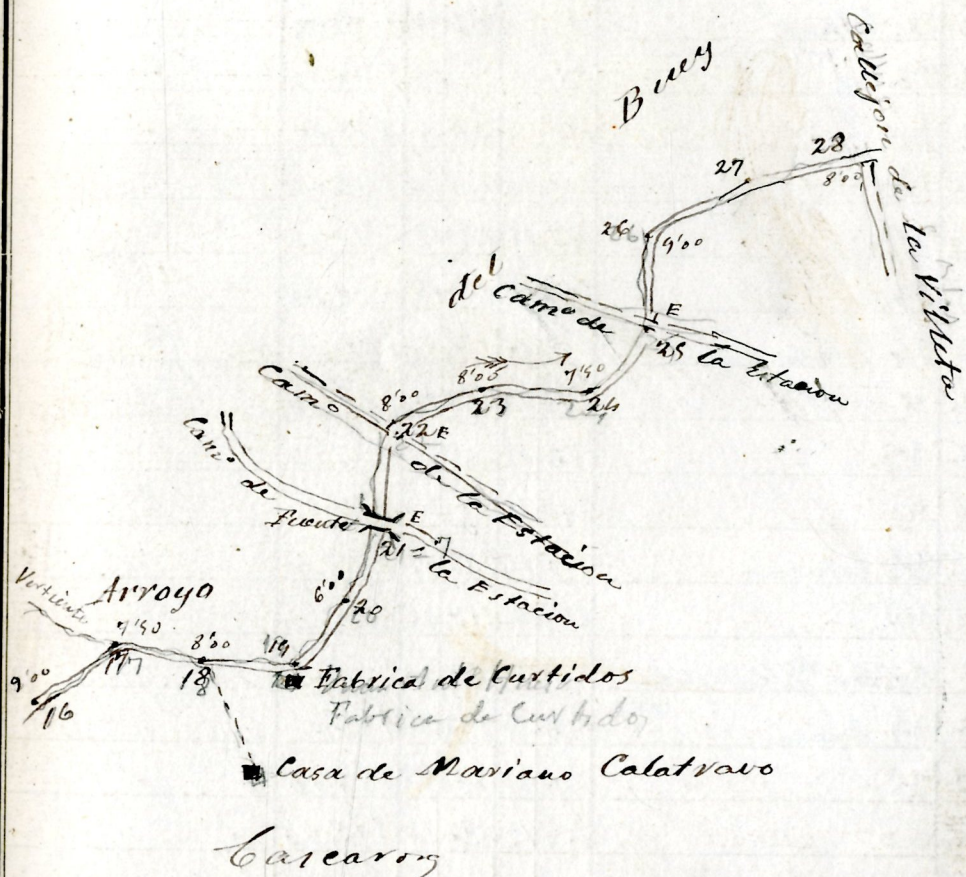 Buey
Callejon de la Villeta
28
8'00
27
26
9'00
del
Camº de
E
25
la Estacion
8'00
7'50
23
24
Camº
8'00
22 E
de la Estacion
Camº
de
E
21
la Estacion
6'00
20
Vertiente
Arroyo
7'50
8'00
19
17
18
9'00
16
Fabrica de Curtidos
Fabrica de Curtidos
Casa de Mariano Calatravo